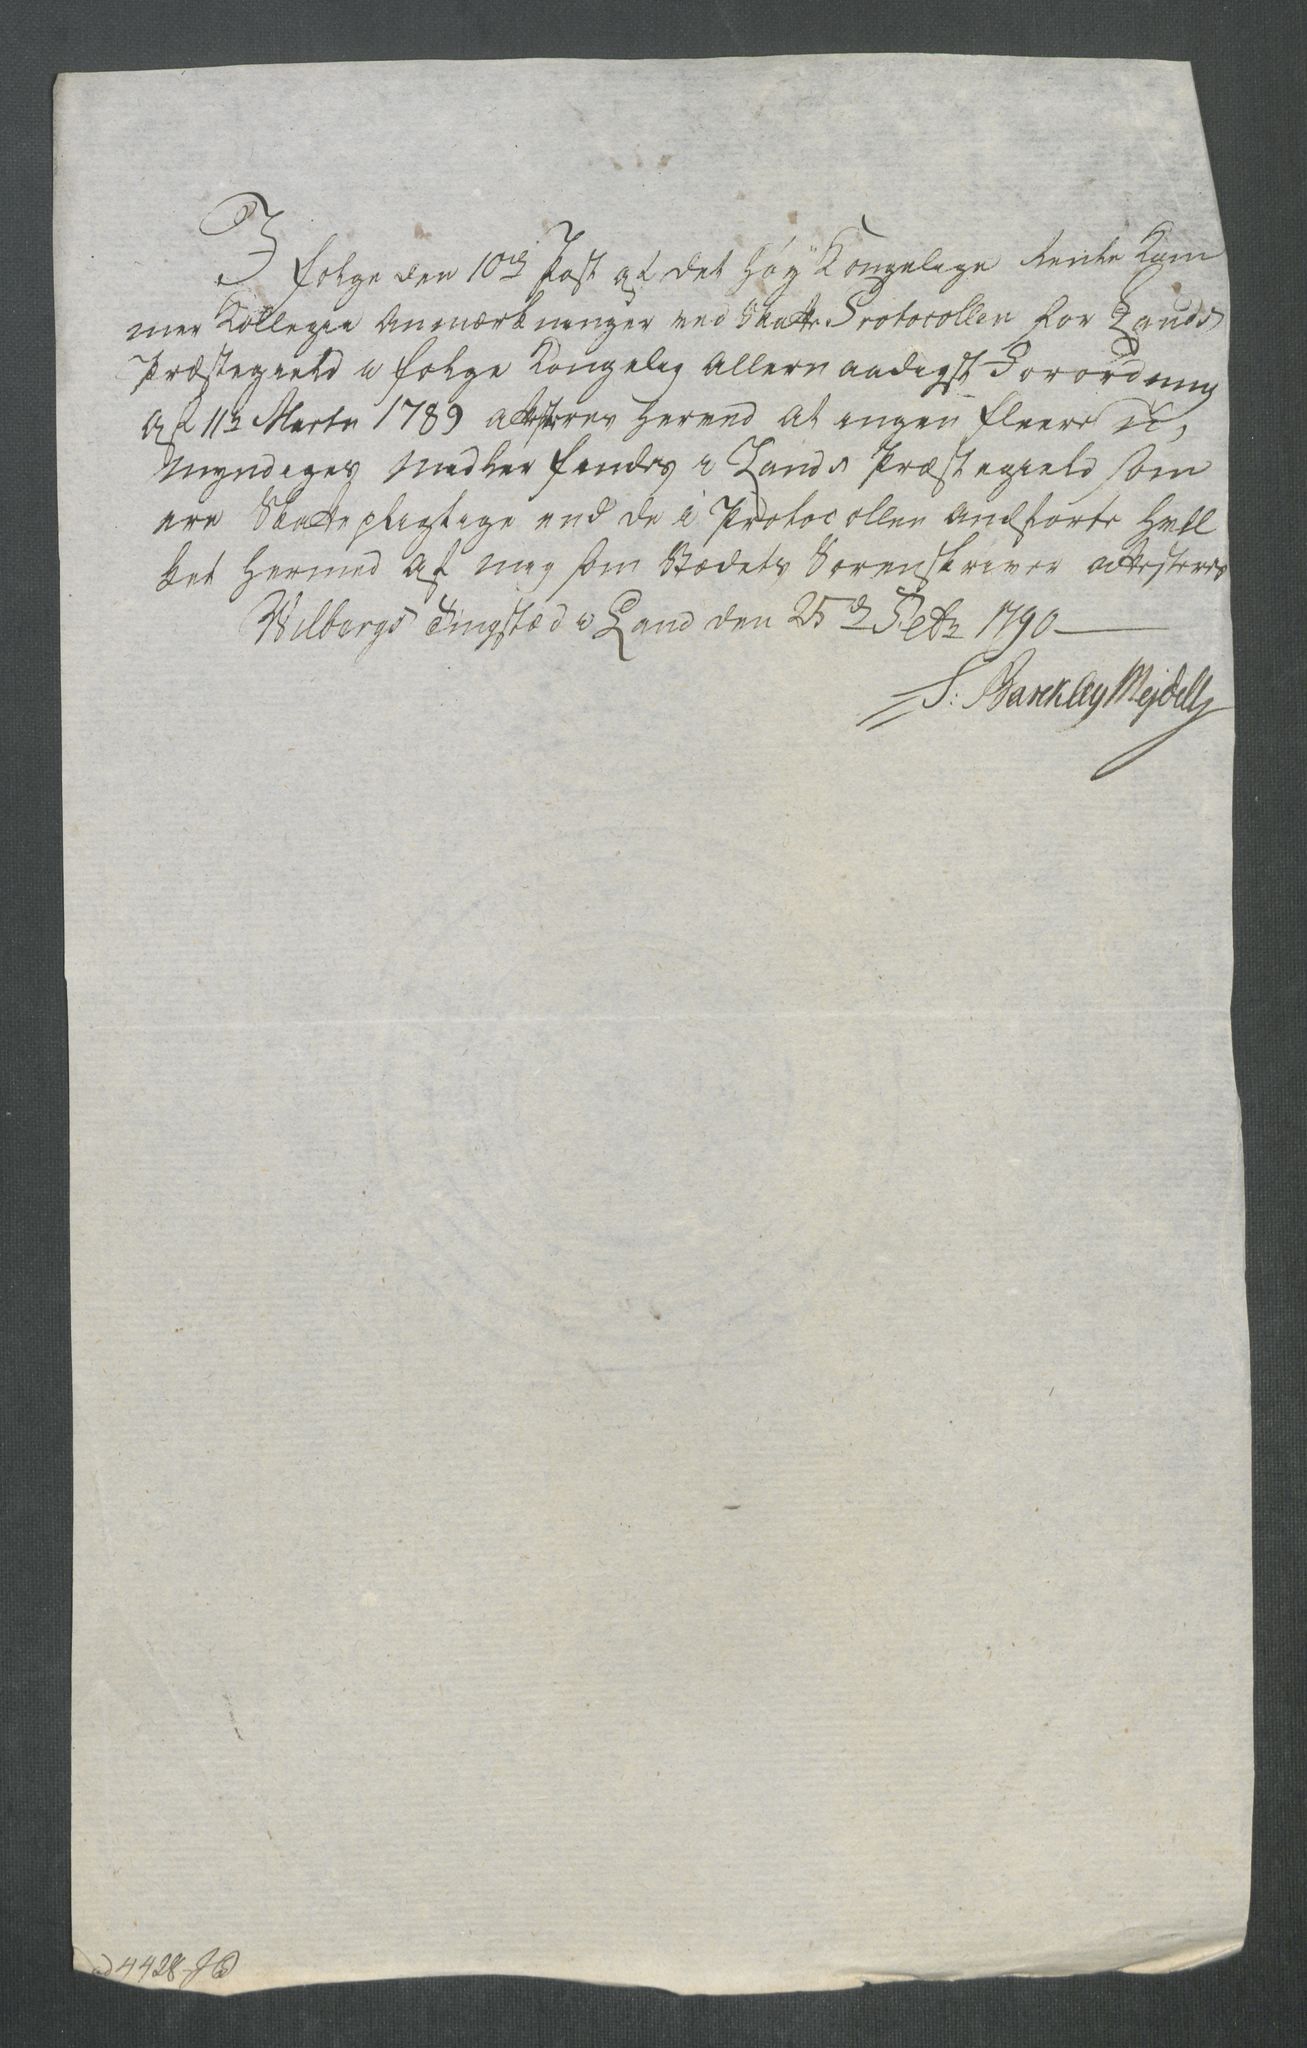 I følge den 10de Post af det høy Kongelige Rente Kam
mer Collegii Anmærkninger ved Skatte Protocollen for Lands
Præstegield i følge Kongelig Allernaadigst Forordning
af 11te Martii 1789 attesteres herved at ingen fleere U,
myndiges Midler findes i Lands Præstegield som
ere Skattepligtige end de i Protocollen andførte hvil
ket hermed af mig som Stædets Sorenskriver attesteres
Wilbergs Tingstæd i Land den 25de Febr 1790
S: Barckley Mejdell
ad 4428